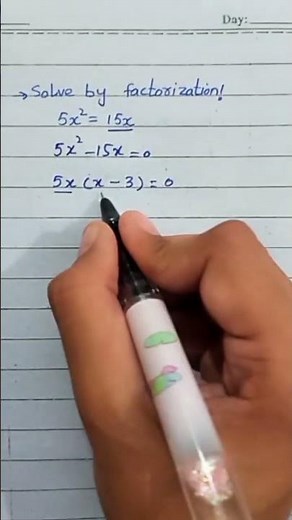 Day:
→ Solve by factorization!
5x² = 15x
5x² - 15x = 0
5x (x - 3) = 0